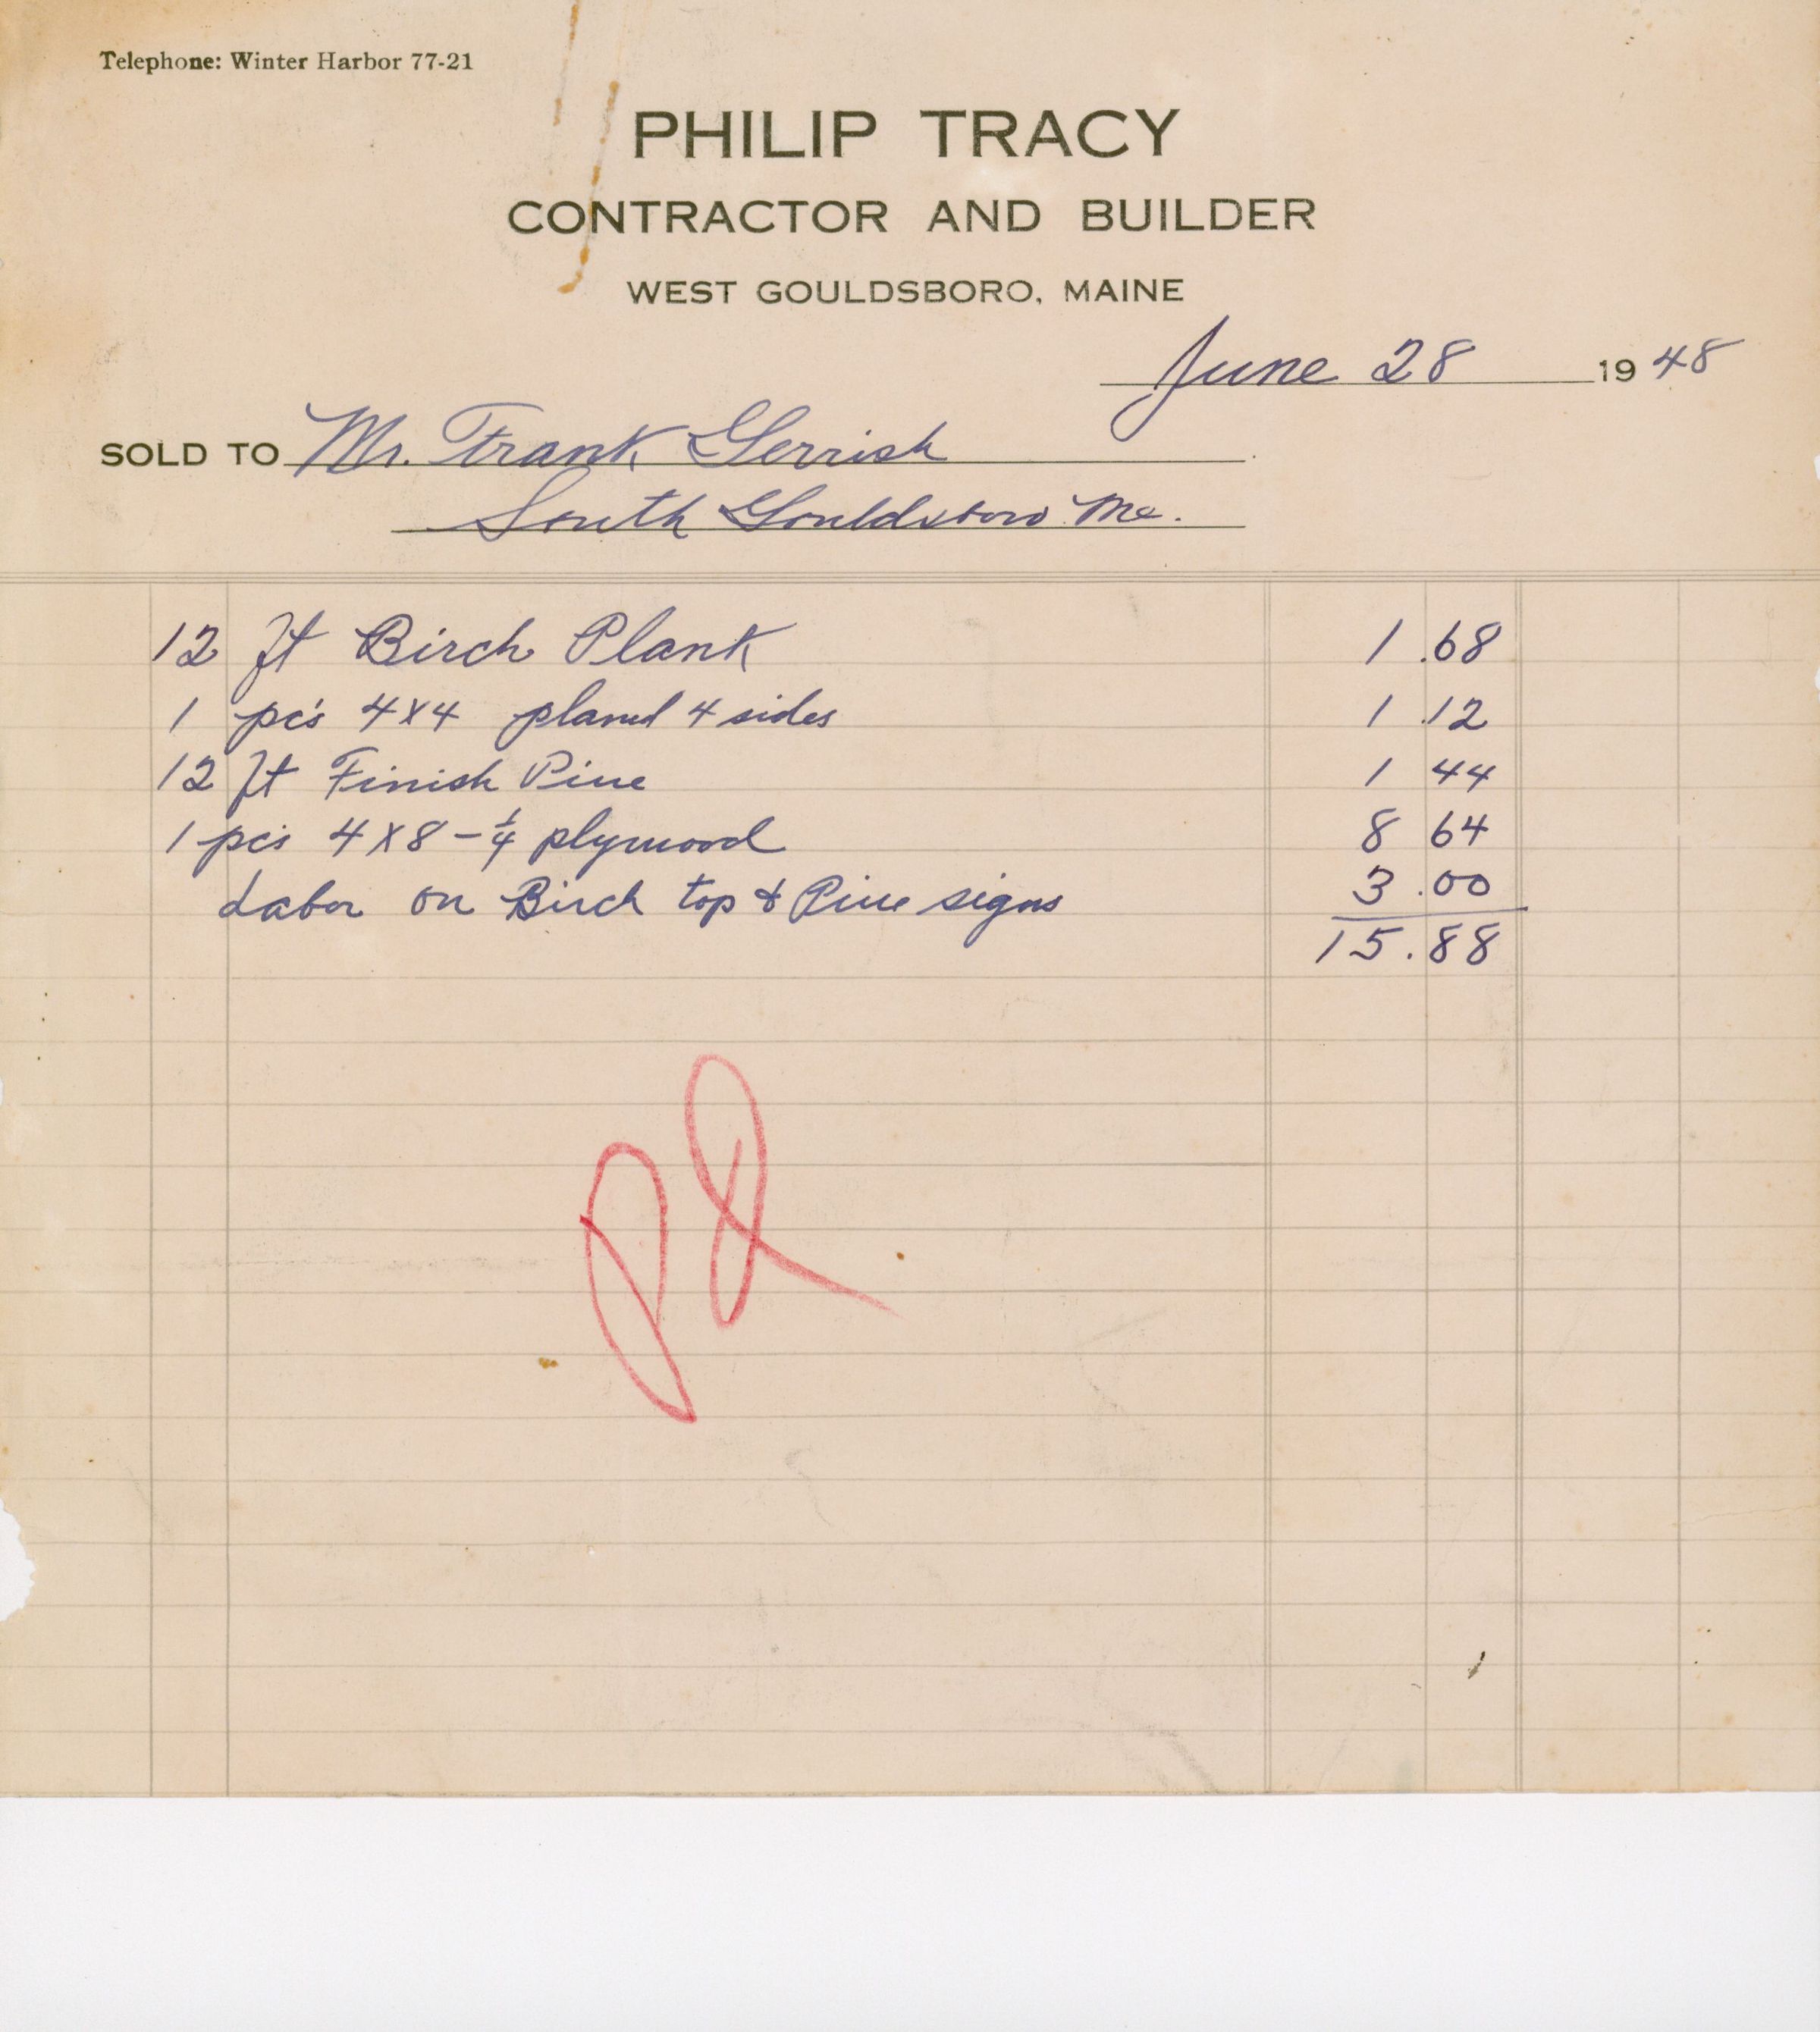 Telephone: Winter Harbor 77-21
PHILIP TRACY
CONTRACTOR AND BUILDER
WEST GOULDSBORO, MAINE
June 28 1948
SOLD TO Mr. Frank Gerrish
South Gouldsboro Me.
12 ft Birch Plank 1.68
1 pc's 4x4 planed 4 sides 1.12
12 ft Finish Pine 1 44
1 pc's 4x8 - 1/4 plywood 8 64
Labor on Birch top & Pine signs 3.00
15.88
Pd